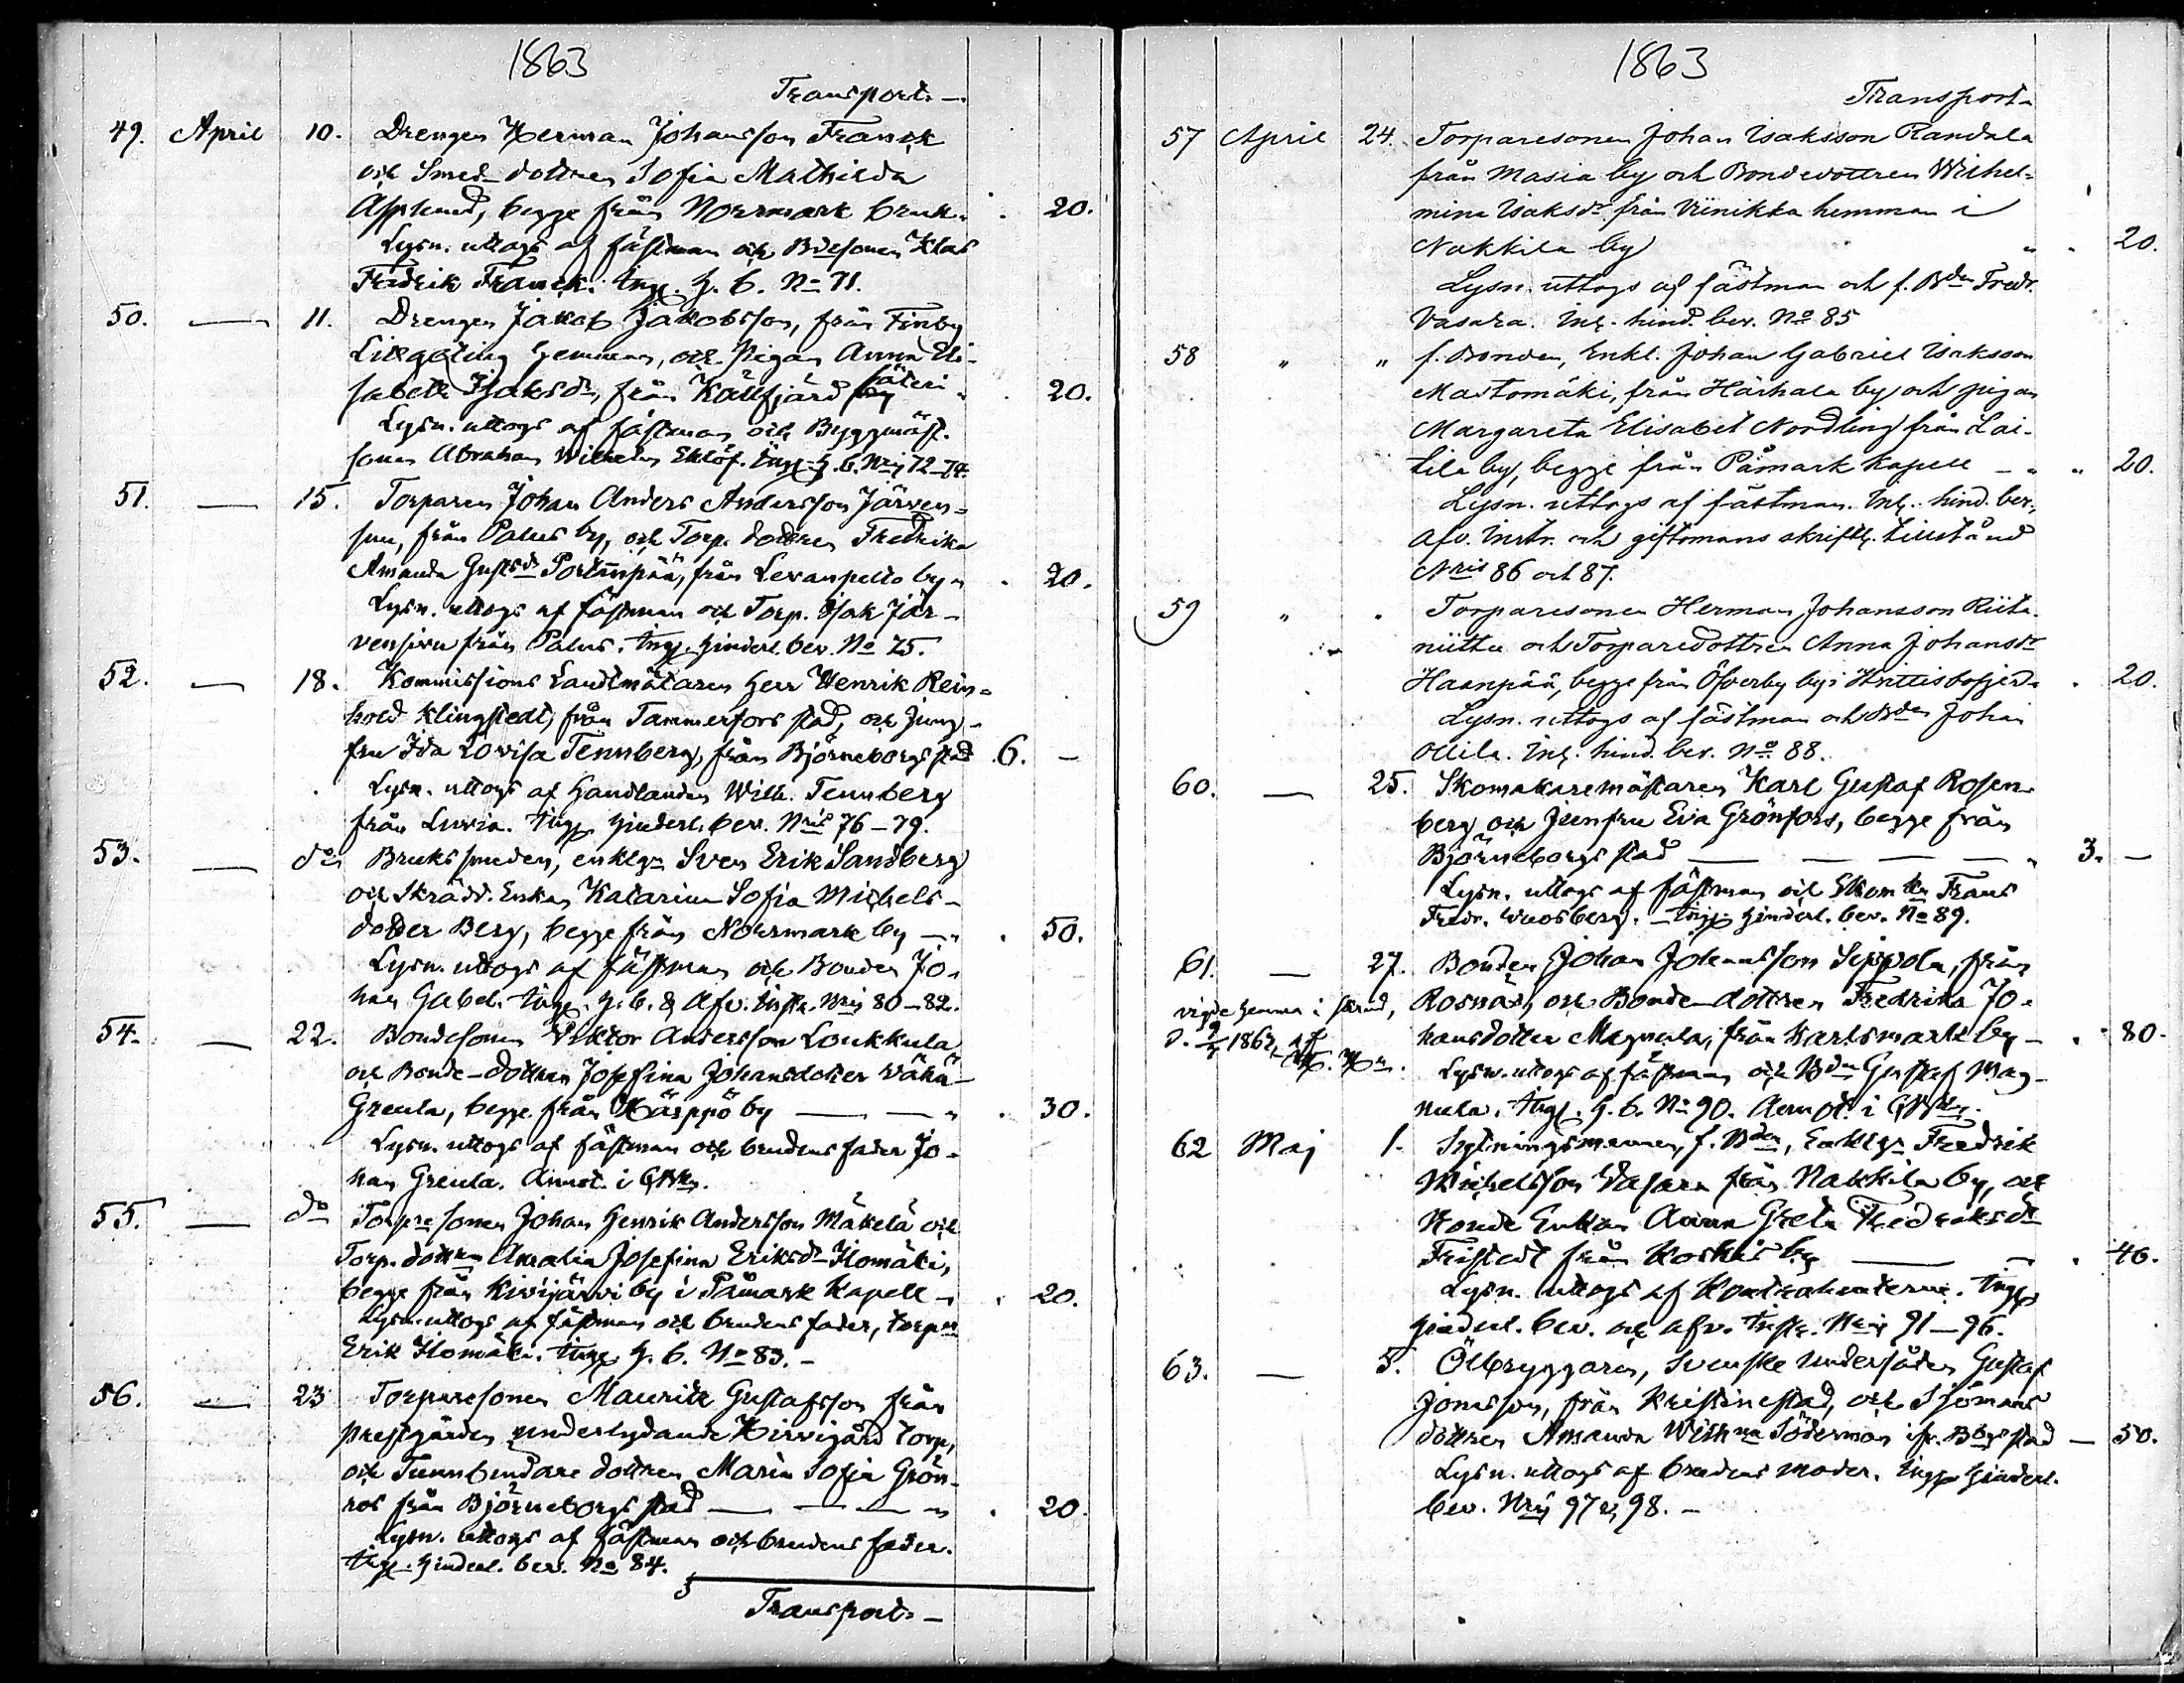 1863
Transport.—
49. April 10. Drengen Herman Johansson Franck
och Smed-dottren Sofia Mathilda
Applund, begge från Norrmark bruk. . 20.
Lysn. uttogs af fästman och Bdesonen Klas
Fredrik Franck. Ingf. h. b. No 71.
50. — 11. Drengen Jakob Jakobsson, från Finby
Lillgäling hemman, och Pigan Anna Eli-
sabeth Isaksdr, från Källfjärd säteri . 20.
Lysn. uttogs af fästman och Byggmäst.
sonen Abraham Wilhelm Eklöf. Ingf. h. b. Nris 72–74.
51. — 15. Torparen Johan Anders Andersson Järven-
suu, från Palus by, och Torp. dottren Fredrika
Amanda Gustsdr Portinpää, från Levanpelto by „ . 20.
Lysn. uttogs af fästman och Torp. Isak Jär-
vensivu från Palus. Ingf. hinderl. bev. No 75.
52. — 18. Kommissions Landtmätaren Herr Henrik Rein-
hold Klingstedt, från Tammerfors stad, och Jung-
fru Ida Lovisa Tennberg, från Björneborgs stad 6. —
Lysn. uttogs af Handlanden Wilh. Tennberg
från Luvia. Ingf. hinderl. bev. Nris 76–79.
53. — do Brukssmeden, enklgn Sven Erik Sandberg
och Skrädd. Enkan Katarina Sofia Michels-
dotter Berg, begge från Norrmark by — „ . 50.
Lysn. uttogs af fästman och Bonden Jo-
han Gabel. Ingf. h. b. & Afv. Instr. Nris 80–82.
54. — 22. Bondesonen Viktor Andersson Loukkula
och Bonde-dottren Josefina Johansdotter Vähä-
Greula, begge från Härppö by — — „ . 30.
Lysn. uttogs af fästman och brudens fader Jo-
han Greula. Annot. i
55. — do Torpresonen Johan Henrik Andersson Mäkelä och
Torp. dottren Amalia Josefina Eriksdr Ilomäki,
begge från Kivijärvi by i Påmark Kapell — . 20.
Lysn. uttogs af fästman och brudens fader, torpn
Erik Ilomäki. Ingf. h. b. No 83. –
56. — 23 Torparesonen Mauritz Gustafsson från
prestgården underlydande Hirvigård torp,
och Tunnbindare dottren Maria Sofia Grön-
ros från Björneborgs stad — — — „ . 20.
Lysn. uttogs af fästman och brudens fader.
Ingf. hinderl. bev. No 84.
Transport.—
1863
Transport.
57 April 24. Torparesonen Johan Isaksson Randala
från Masia by och Bondedottren Wilhel-
mina Isaksdr från Viinikka hemman i
Nakkila by „ . 20.
Lysn. uttogs af fästman och f. Bden Fredr.
Vasara. Inl. hind. bev. No 85
58 „ „ f. Bonden, Enkl. Johan Gabriel Isaksson
Mastomäki, från Härhala by och pigan
Margareta Elisabet Nordling från Lai-
tila by, begge från Påmark kapell — „ „ 20.
Lysn. uttogs af fästman. Inl. hind. bev.,
Afv. Instr. och giftomans skriftl. tillstånd
Nris 86 och 87.
59 „ . Torparesonen Herman Johansson Riita-
niittu och Torparedottren Anna Johansdr
Haanpää, begge från Öfverby by i Hvittisbofjerd. . 20.
Lysn. uttogs af fästman och Bden Johan
Ollila. Inl. hind. bev. No 88.
60. — 25. Skomakaremästaren Karl Gustaf Rosen-
berg och Jumfru Eva Grönfors, begge från
Björneborgs stad — — — — „ 3. —
Lysn. uttogs af fästman och Skom. Frans
Fredr. Wuosberg. — Ingf. hinderl. bev. No 89.
61. — 27. Bonden Johan Johansson Sippola, från
vigde hemma i Rosnäs, och Bonde-dottren Fredrika Jo-
d. 1863, af hansdotter Magnula, från Karlsmark by — . 80.
Lysn. uttogs af fästman och Bden Gustaf Mag-
nula. Ingf. h. b. No 90. Annot. i
62 Maj 1. Sytningsmannen, f. Bden, Enklgn Fredrik
Michelsson Vasara från Nakkila by, och
Bonde Enkan Anna Greta Fredriksdr
Fristedt från Koskis by — — . 40.
Lysn. uttogs af Kontrahenterne. Ingf.
hinderl. bev. och afv. instr. Nris 91–96.
63. — 5. Ölbryggaren, Svenske Undersåten Gustaf
Jonsson, från Kristinestad, och Sjömans
dottren Amanda Wilhna Söderman ifr. Bbgs stad — 50.
Lysn. uttogs af brudens moder. Ingf. hinderl.
bev. Nris 97 & 98. –